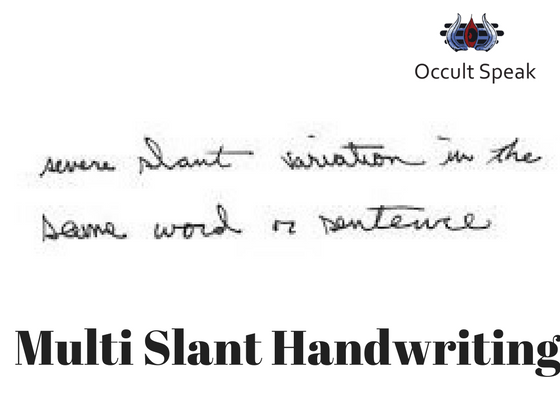 Occult Speak
severe slant variation in the
same word or sentence
Multi Slant Handwriting